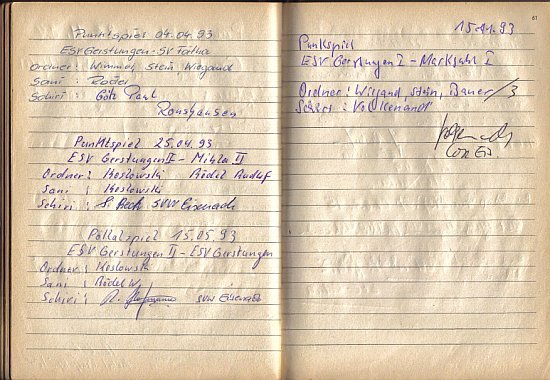 Punktspiel 04.04.93
ESV Gerstungen - SV
Ordner: Wimmer, Stein, Wiegand
Sani: Rödel
Schiri: Götz Paul
Ronshausen
Punktspiel 25.04.93
ESV Gerstungen II - Mihla II
Ordner: Koslowski Rödel Rudolf
Sani: Koslowski
Schiri: Beck SVW Eisenach
Pokalspiel 15.05.93
ESV Gerstungen II - ESV Gerstungen
Ordner: Koslowski
Sani: Rödel W.
Schiri: SVW Eisenach
61
93
Punktspiel
ESV Gerstungen I - Marksuhl I
Ordner: Wiegand, Stein, Bauer /3
Schiri: Volkenandt